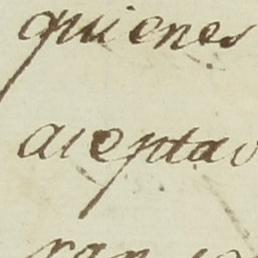 quienes
aceptav